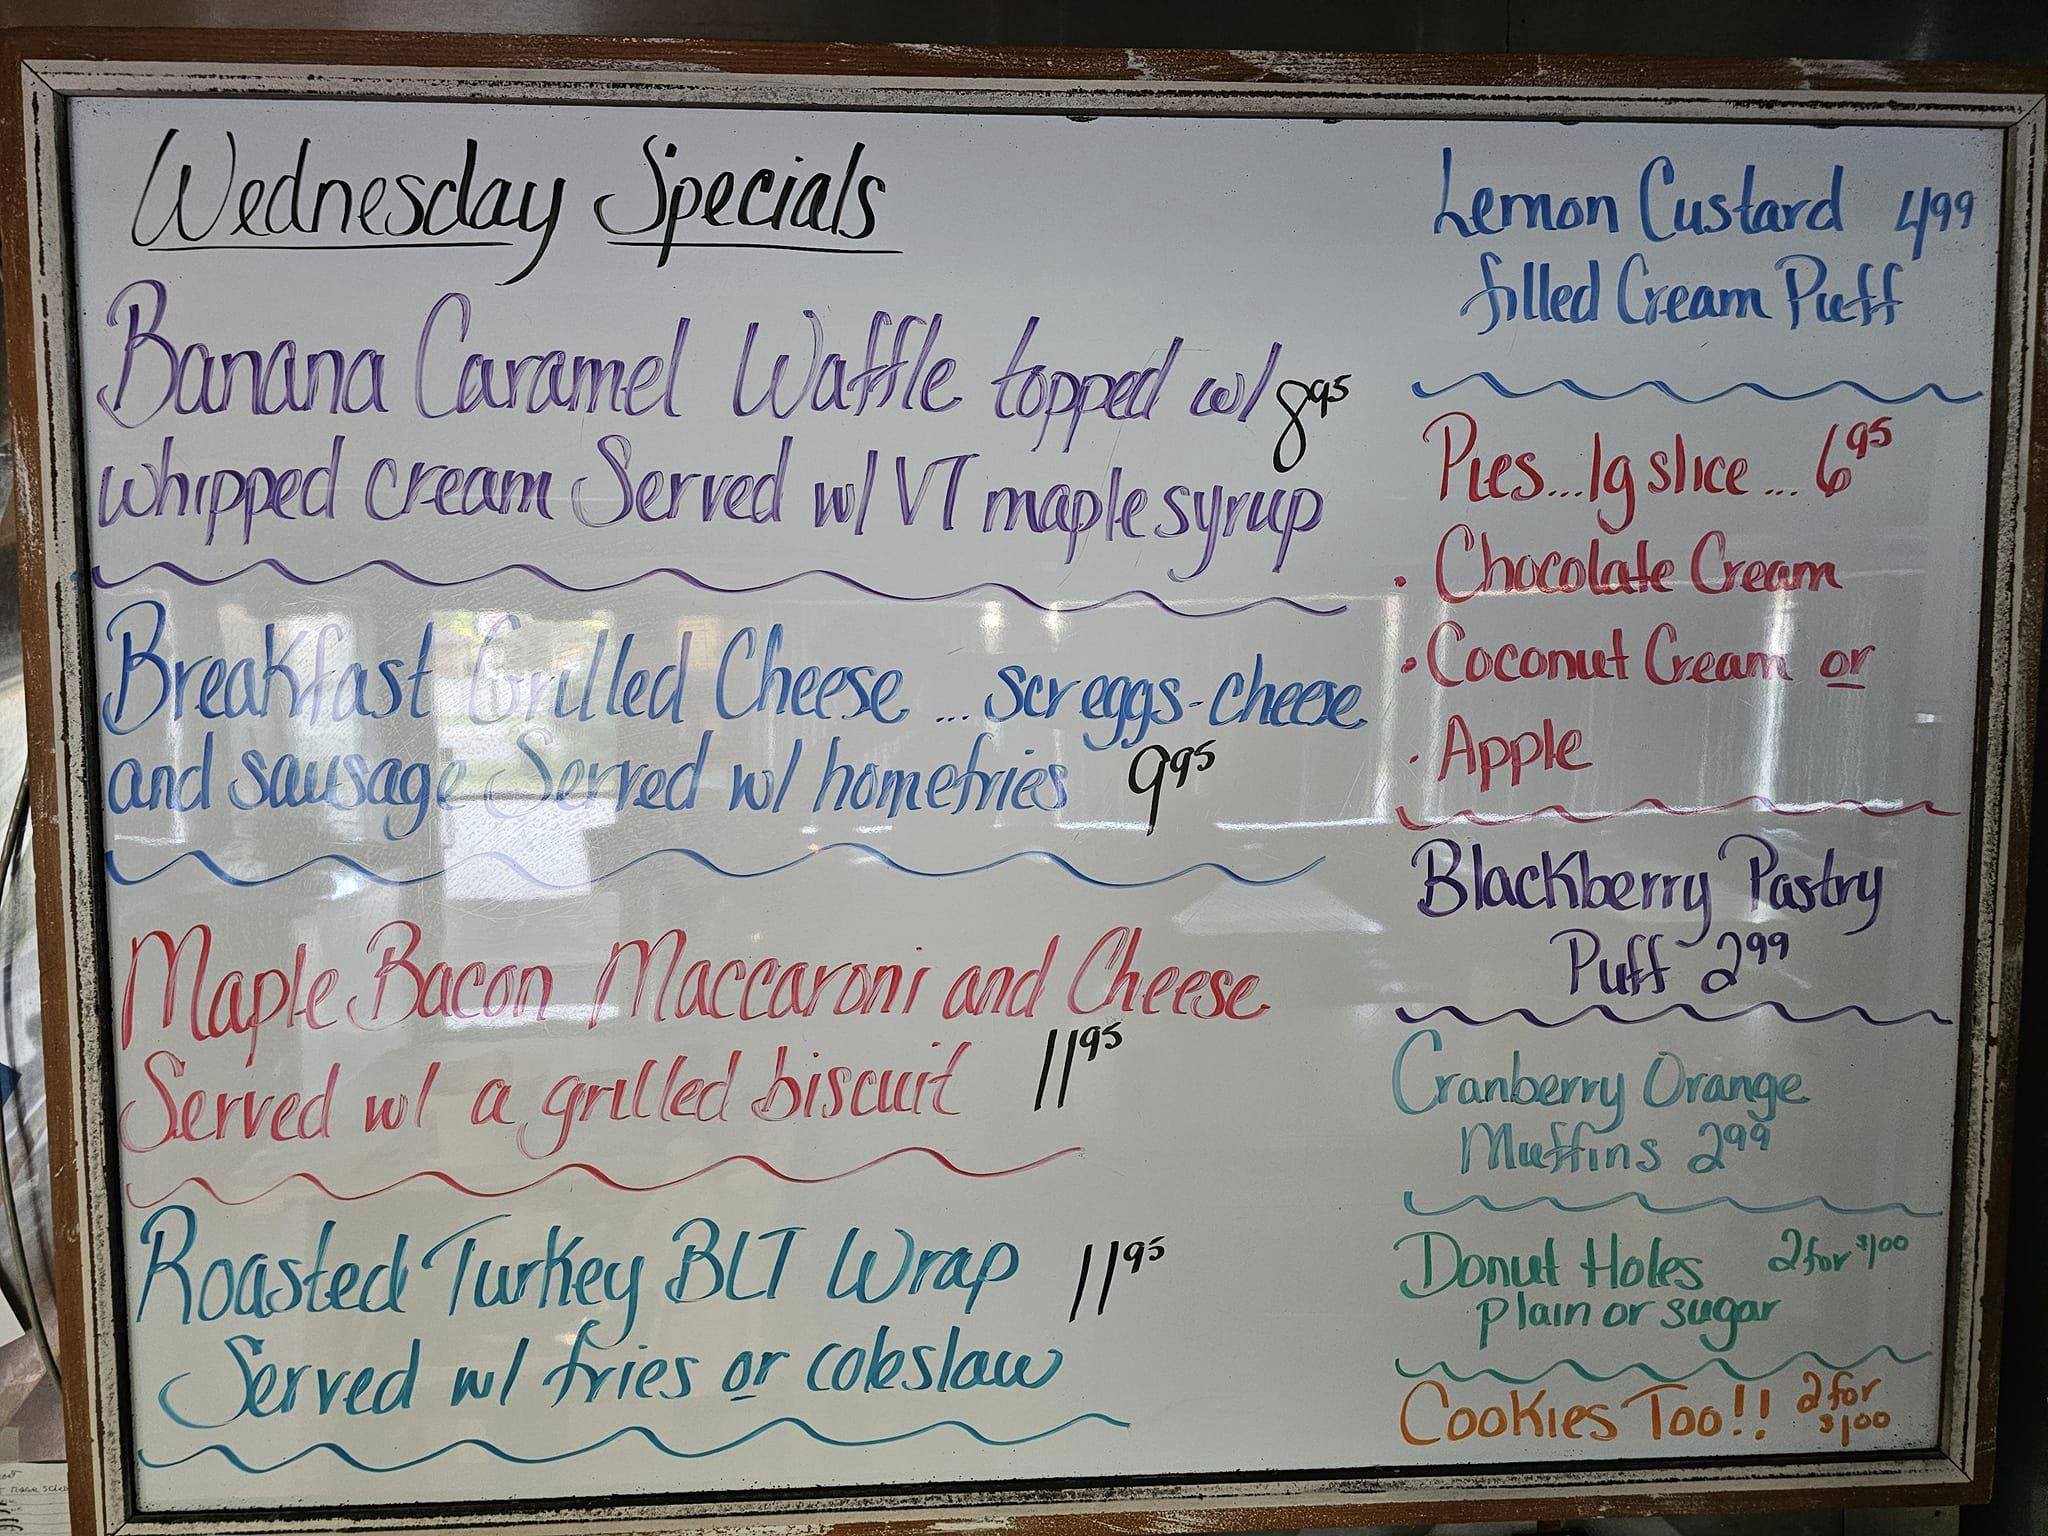 Wednesday Specials
Banana Caramel Waffle topped w/ 8.95
whipped cream Served w/ VT maple syrup
Breakfast Grilled Cheese ... scr eggs-cheese
and sausage Served w/ homefries 9.95
Maple Bacon Maccaroni and Cheese
Served w/ a grilled biscuit 11.95
Roasted Turkey BLT Wrap 11.95
Served w/ fries or coleslaw
Lemon Custard 4.99
filled Cream Puff
Pies...lg slice ... 6.95
• Chocolate Cream
• Coconut Cream or
• Apple
Blackberry Pastry
Puff 2.99
Cranberry Orange
Muffins 2.99
Donut Holes 2 for $1.00
plain or sugar
Cookies Too!! 2 for
$1.00